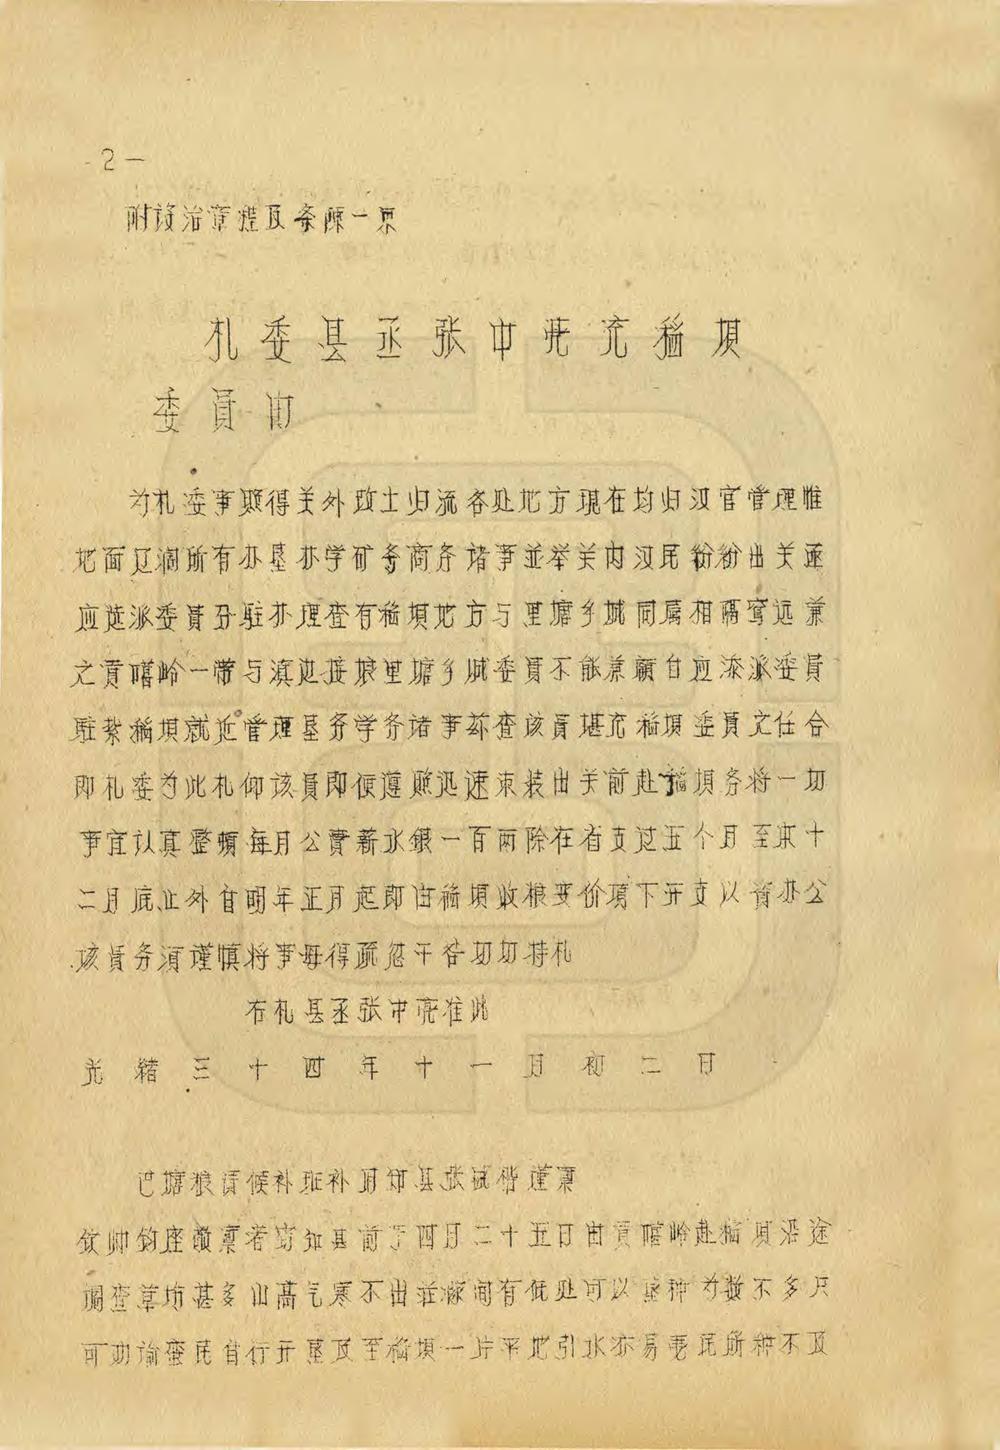 -2-
附设治章程及条陈一禀
札委县丞张中亮充稻坝
委员由
为札委事照得关外改土归流各处地方现在均归汉官管理惟
地面辽阔所有办垦办学矿务商务诸事並举关内汉民纷纷出关亟
应选派委员分驻办理查有稻坝地方与里塘乡城同属相隔窎远兼
之贡噶岭一带与滇边接壤里塘乡城委员不能兼顾自应添派委员
驻紥稻坝就近管理垦务学务诸事兹查该员堪充稻坝委员之任合
即札委为此札仰该员即便遵照迅速束装出关前赴稻坝务将一切
事宜认真整顿每月公费薪水银一百两除在省支过五个月至来十
二月底止外自明年正月起即由稻坝收粮变价项下开支以资办公
该员务须谨慎将事毋得疏忽干咎切切特札
右札县丞张中亮准此
光绪三十四年十一月初二日
巴塘粮员候补班补用知县张锡偕谨禀
钦帅钧座敬禀者窃知县前于四月二十五日由贡噶岭赴稻坝沿途
调查草坊甚多山高气寒不出荘稼间有低处可以垦种为数不多只
可劝谕蛮民自行开垦及至稻坝一片平地引水亦易蛮民所种不及